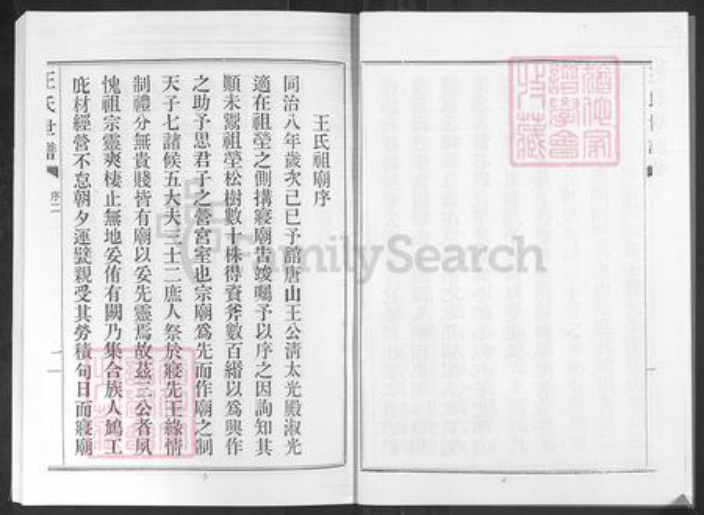 王氏祖廟序
同治八年歲次己巳予舘唐山王公淸太光殿淑光
適在祖塋之側搆寢廟告竣囑予以序之因詢知其
顚末鬻祖塋松樹數十株得資斧數百緡以爲興作
之助予思君子之營宮室也宗廟爲先而作廟之制
天子七諸候五大夫三士二庶人祭於寢先王緣情
制禮分無貴賤皆有廟以妥先靈焉故茲三公者夙
愧祖宗靈爽棲止無地妥侑有闕乃集合族人鳩工
庇材經營不怠朝夕運甓親受其勞積旬日而寢廟
王氏世譜
序二
一
FamilySearch